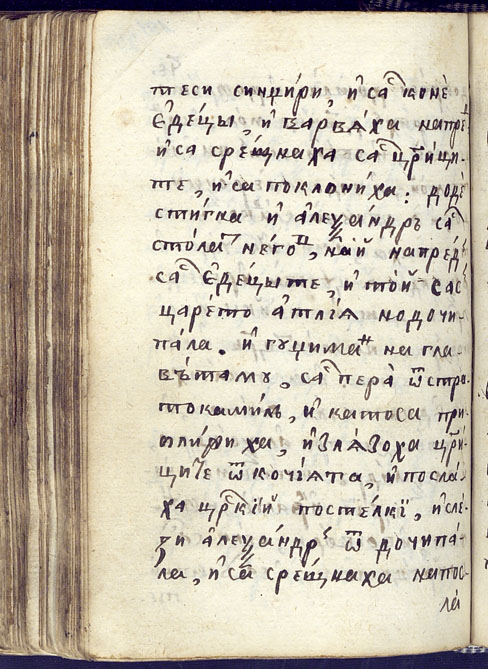 теси синџири, и҆ са҆ коне
є҆децы, и҆ варвѧха напре
и҆ са срещнаха са҆ цр҃ици-
те, и҆ са поклониха: доде
стигна и҆ алеѯандръ са҆
стола него, най напред
са҆ є҆децыте, и҆ той сас
царето а҆тлїѧ нодочи-
пала. и҆ гуџиман на гла-
вътаму, са҆ пера ѿ стра-
токамилъ, и҆ катоса при
ближи ха, и҆злѧзоха цр҃и-
ците ѿ кочїѧта, и҆ посла-
ха цр҃кїй постелкї, и҆ слѣ-
зи алеѯандръ ѿ дочипа-
ла, и҆ са срещнаха напос-
ла